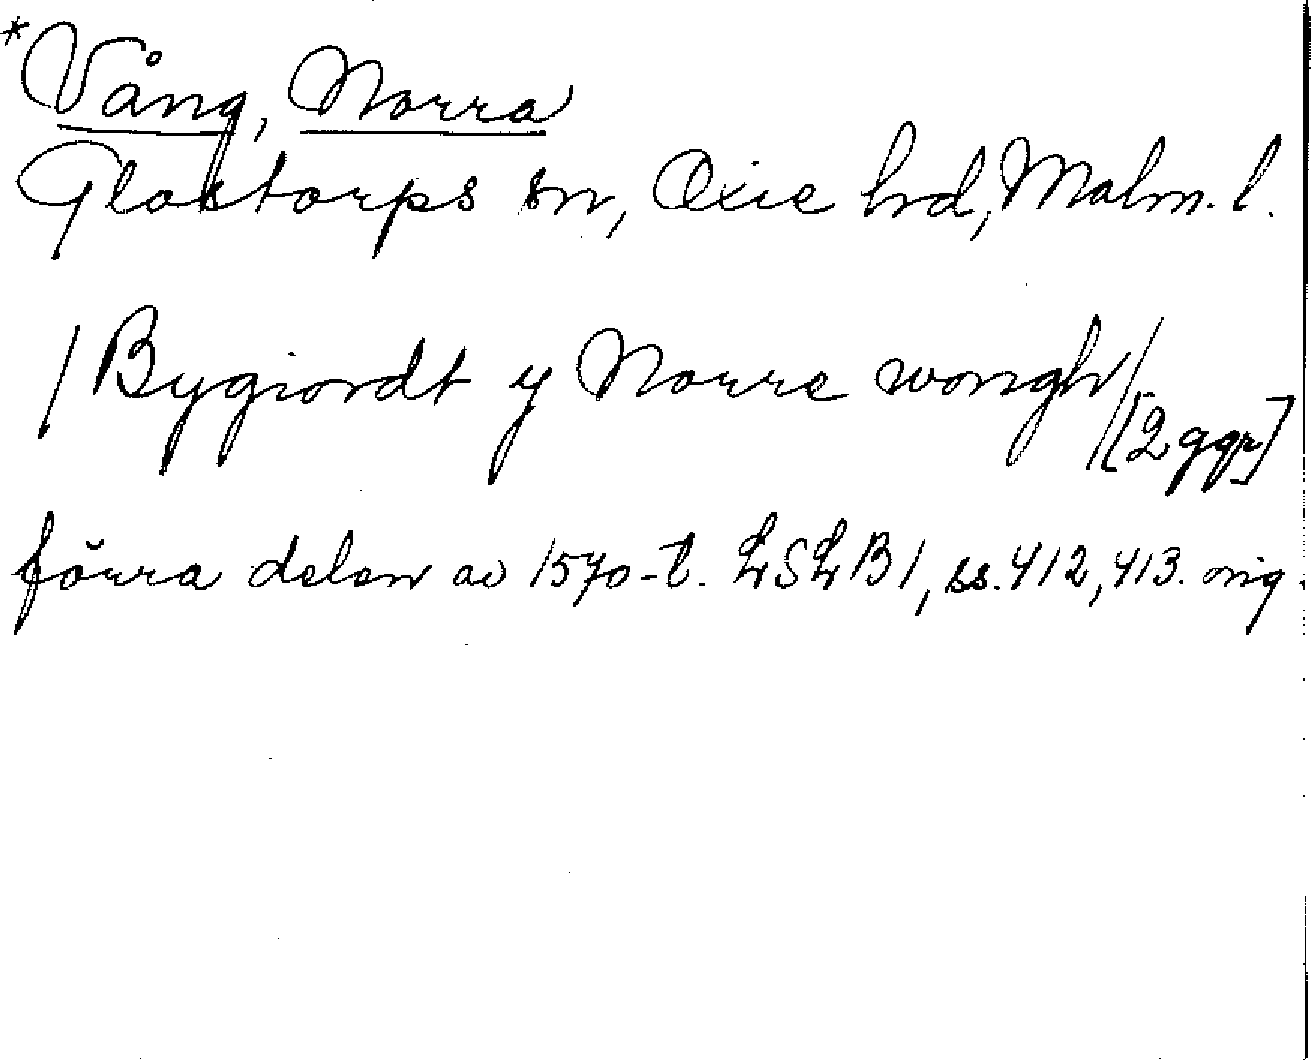 *Vång, Norra
Glostorps sn, Oxie hrd, Malm. l.
/Bygiordt y Norre wongh/ [2 ggr]
förra delen av 1570-t. LSLB1, ss. 412, 413. orig.